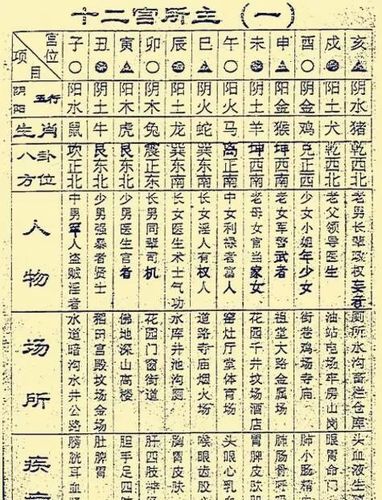 十二宫所主（一）
宫位 项目 子 丑 寅 卯 辰 巳 午 未 申 酉 戌 亥
阴阳五行 阳水 阴土 阳木 阴木 阳土 阴火 阳火 阴土 阳金 阴金 阳土 阴水
生肖 鼠 牛 虎 兔 龙 蛇 马 羊 猴 鸡 犬 猪
八卦方位 坎正北 艮东北 艮东北 震正东 巽东南 巽东南 离正南 坤西南 坤西南 兑正西 乾西北 乾西北
人物 中男罪人盗贼淫者 少男强暴者贤士 少男医生官者 长男同辈司机 长女医生术士气功 长女淫人有权人 中女利禄者富人 老母女官当家女 老女军警武者 少女小姐年少女 老父领导医生 老男长辈
场所 水道暗沟水井公路 稻田宫殿坟场金场 佛地深山高楼 花园门窗街道 水库井池沟厕 道路寺庙烟火场 窑灶厅堂体育场 花园千井坟场酒店 道堂大路金属场 街巷鸡场寺庙 油站电场牢房山岗 厕所水沟畜栏仓库
疾 膀胱耳血 肚脾胃 胆手足四 肝四肢 胸胃皮肤 喉眼齿股 头眼心乳 胃脾皮肤 肺肠骨 肺小肠精 眼胃命门 头血液生